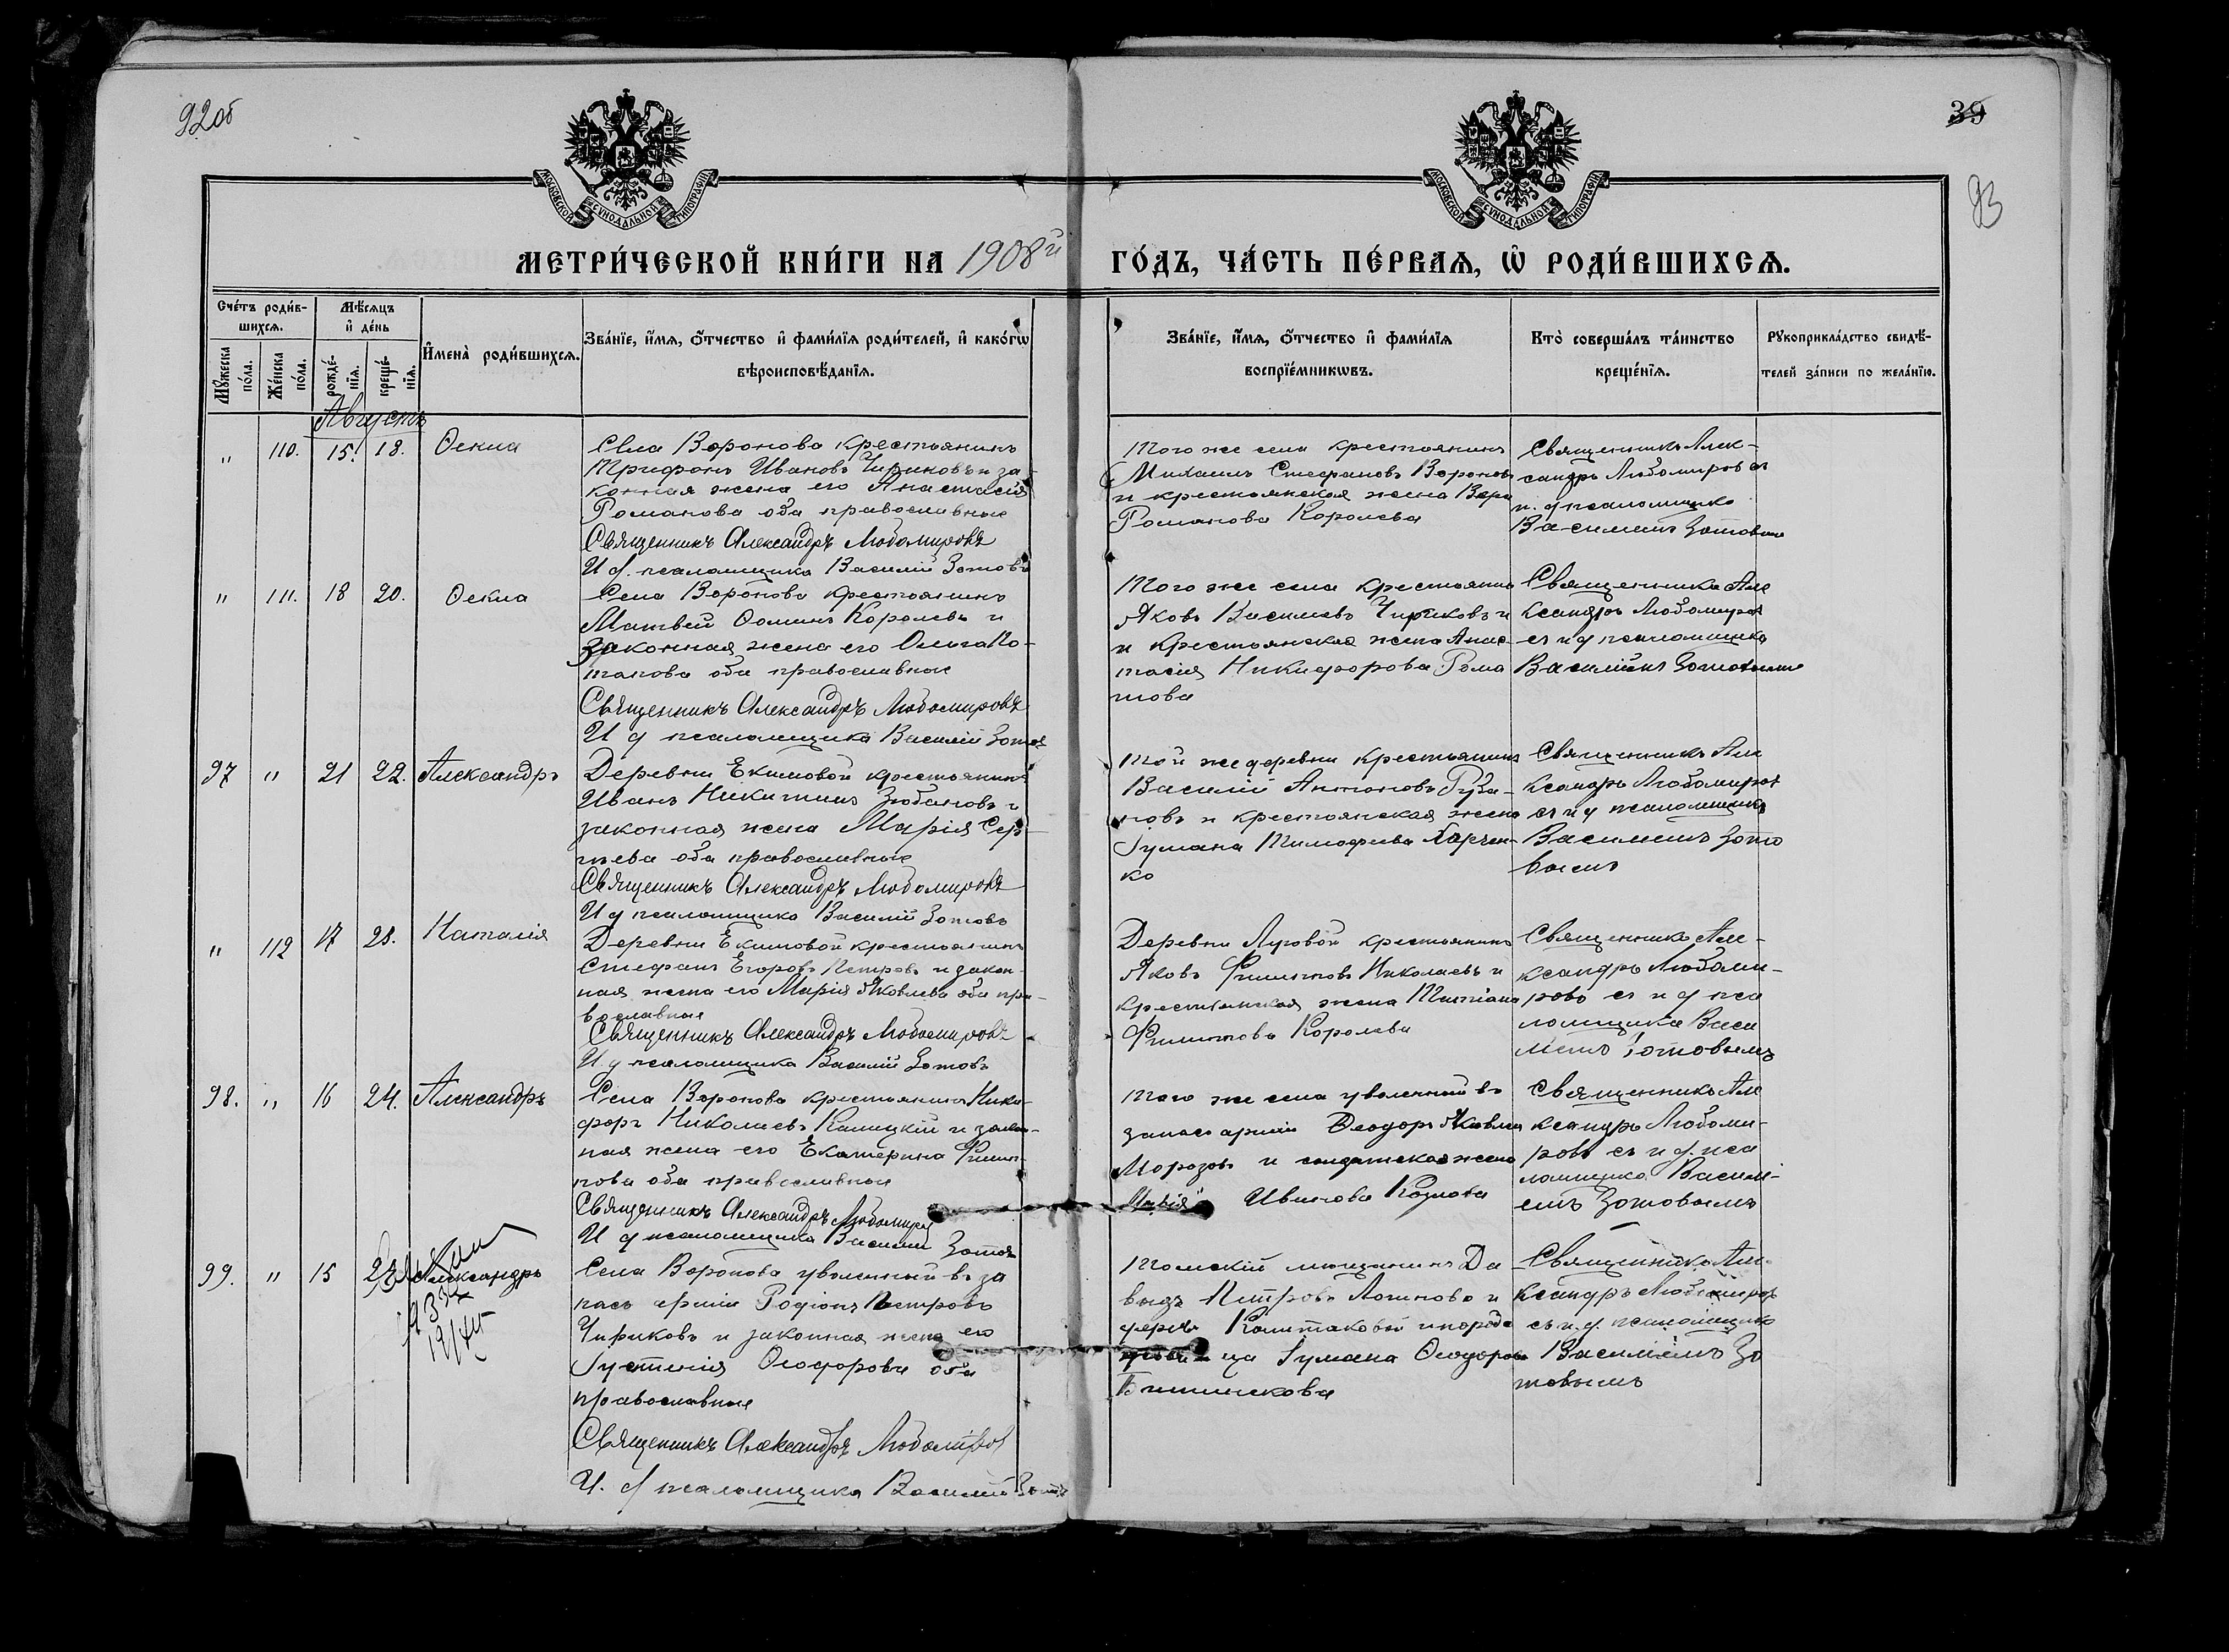 92об
39
93
МОСКОВСКОЙ СУНОДАЛЬНОЙ ТИПОГРАФІИ
МОСКОВСКОЙ СУНОДАЛЬНОЙ ТИПОГРАФІИ
МЕТРИ́ЧЕСКОЙ КНИ́ГИ НА 1908й ГО́ДЪ, ЧА́СТЬ ПЕ́РВАѦ, Ѡ҆ РОДИ́ВШИХСѦ.
Сче́тъ роди́в-
шихсѧ.
Мꙋ́жеска по́ла.
Же́нска по́ла.
Мѣ́сѧцъ
и҆ де́нь
рожде́-нїѧ.
креще́-нїѧ.
И҆мена̀ роди́вшихсѧ.
Зва́нїе, и҆́мѧ, ѻ҆́тчество и҆ фами́лїѧ роди́телей, и҆ како́гѡ
вѣроисповѣ́данїѧ.
Зва́нїе, и҆́мѧ, ѻ҆́тчество и҆ фами́лїѧ
воспрїе́мникѡвъ.
Кто̀ соверша́лъ та́инство
креще́нїѧ.
Рꙋкоприкла́дство свидѣ́-
телей за́писи по жела́нїю.
Августъ
" 110. 15. 18. Ѳекла
Села Воронова крестьянинъ
Трифонъ Ивановъ Чириковъ и за-
конная жена его Анастасія
Романова оба православные
Священникъ Александръ Любомировъ
И д. псаломщика Василій Зотовъ
Того же села крестьянинъ
Михаилъ Стефановъ Вороновъ
и крестьянская жена Вера
Романова Королева
Священникъ Алек-
сандръ Любомировъ съ
и. д псаломщика
Василіемъ Зотовымъ
" 111. 18 20. Ѳекла
Села Воронова крестьянинъ
Матвей Ѳоминъ Королевъ и
законная жена его Ольга По-
тапова оба православные
Священникъ Александръ Любомировъ
И д псаломщика Василій Зотовъ
Того же села крестьянинъ
Яковъ Васильевъ Чириковъ и
и крестьянская жена Анас-
тасія Никифорова Рома
нова
Священникъ Але
ксандръ Любомировъ
съ и д псаломщика
Василіемъ Зотовымъ
97 " 21 22. Александръ
Деревни Екимовой крестьянинъ
Иванъ Никитинъ Зюбановъ и
законная жена Марія Сер-
гѣева оба православные
Священникъ Александръ Любомировъ
И д псаломщика Василій Зотовъ
Той же деревни крестьянинъ
Василій Антоновъ
новъ и крестьянская жена
Іуліана Тимофеева Харчен-
ко
Священникъ Але
ксандръ Любомировъ
съ и д псаломщика
Василіемъ Зото
вымъ
" 112 17 23. Наталія
Деревни Екимовой крестьянинъ
Стефанъ Егоровъ Петровъ и закон-
ная жена его Марія Яковлева оба пра-
вославные
Священникъ Александръ Любомировъ
И д псаломщика Василій Зотовъ
Деревни Луговой крестьянинъ
Яковъ Филиповъ Николаевъ и
крестьянская жена Татіана
Филипова Королева
Священникъ Але-
ксандръ Любоми-
ровъ съ и д пса
ломщика Васи
ліемъ Зотовымъ
98. " 16 24. Александръ
Села Воронова крестьянинъ Ники-
форъ Николаевъ Калицкій и закон-
ная жена его Екатерина Филип-
пова оба православные
Священникъ Александръ Любомировъ
И д псаломщика Василій Зотовъ
Того же села уволенный въ
запасъ арміи Ѳеодоръ Яковлевъ
Морозовъ и солдатская жена
Марія Иванова Козлова
Священникъ Але
ксандръ Любоми-
ровъ съ и д. пса
ломщика Василі-
емъ Зотовымъ
99. " 15 Александръ
Села Воронова уволенный въ за
пасъ арміи Родіонъ Петровъ
Чириковъ и законная жена его
Іустинія Ѳеодорова оба
православные
Священникъ Александръ Любомировъ
И. д псаломщика Василій Зотовъ
Томскій мещанинъ Да
выдъ Петровъ Логиновъ и
Іуліана Ѳеодорова
Священникъ Але
ксандръ Любомировъ
съ и. д. псаломщика
Василіемъ Зо
товымъ